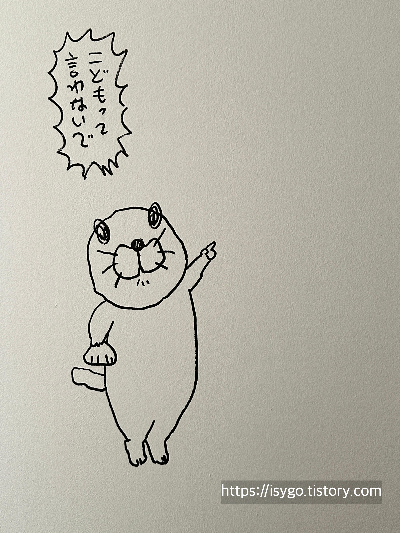 こどもって
言わないで
https://isygo.tistory.com